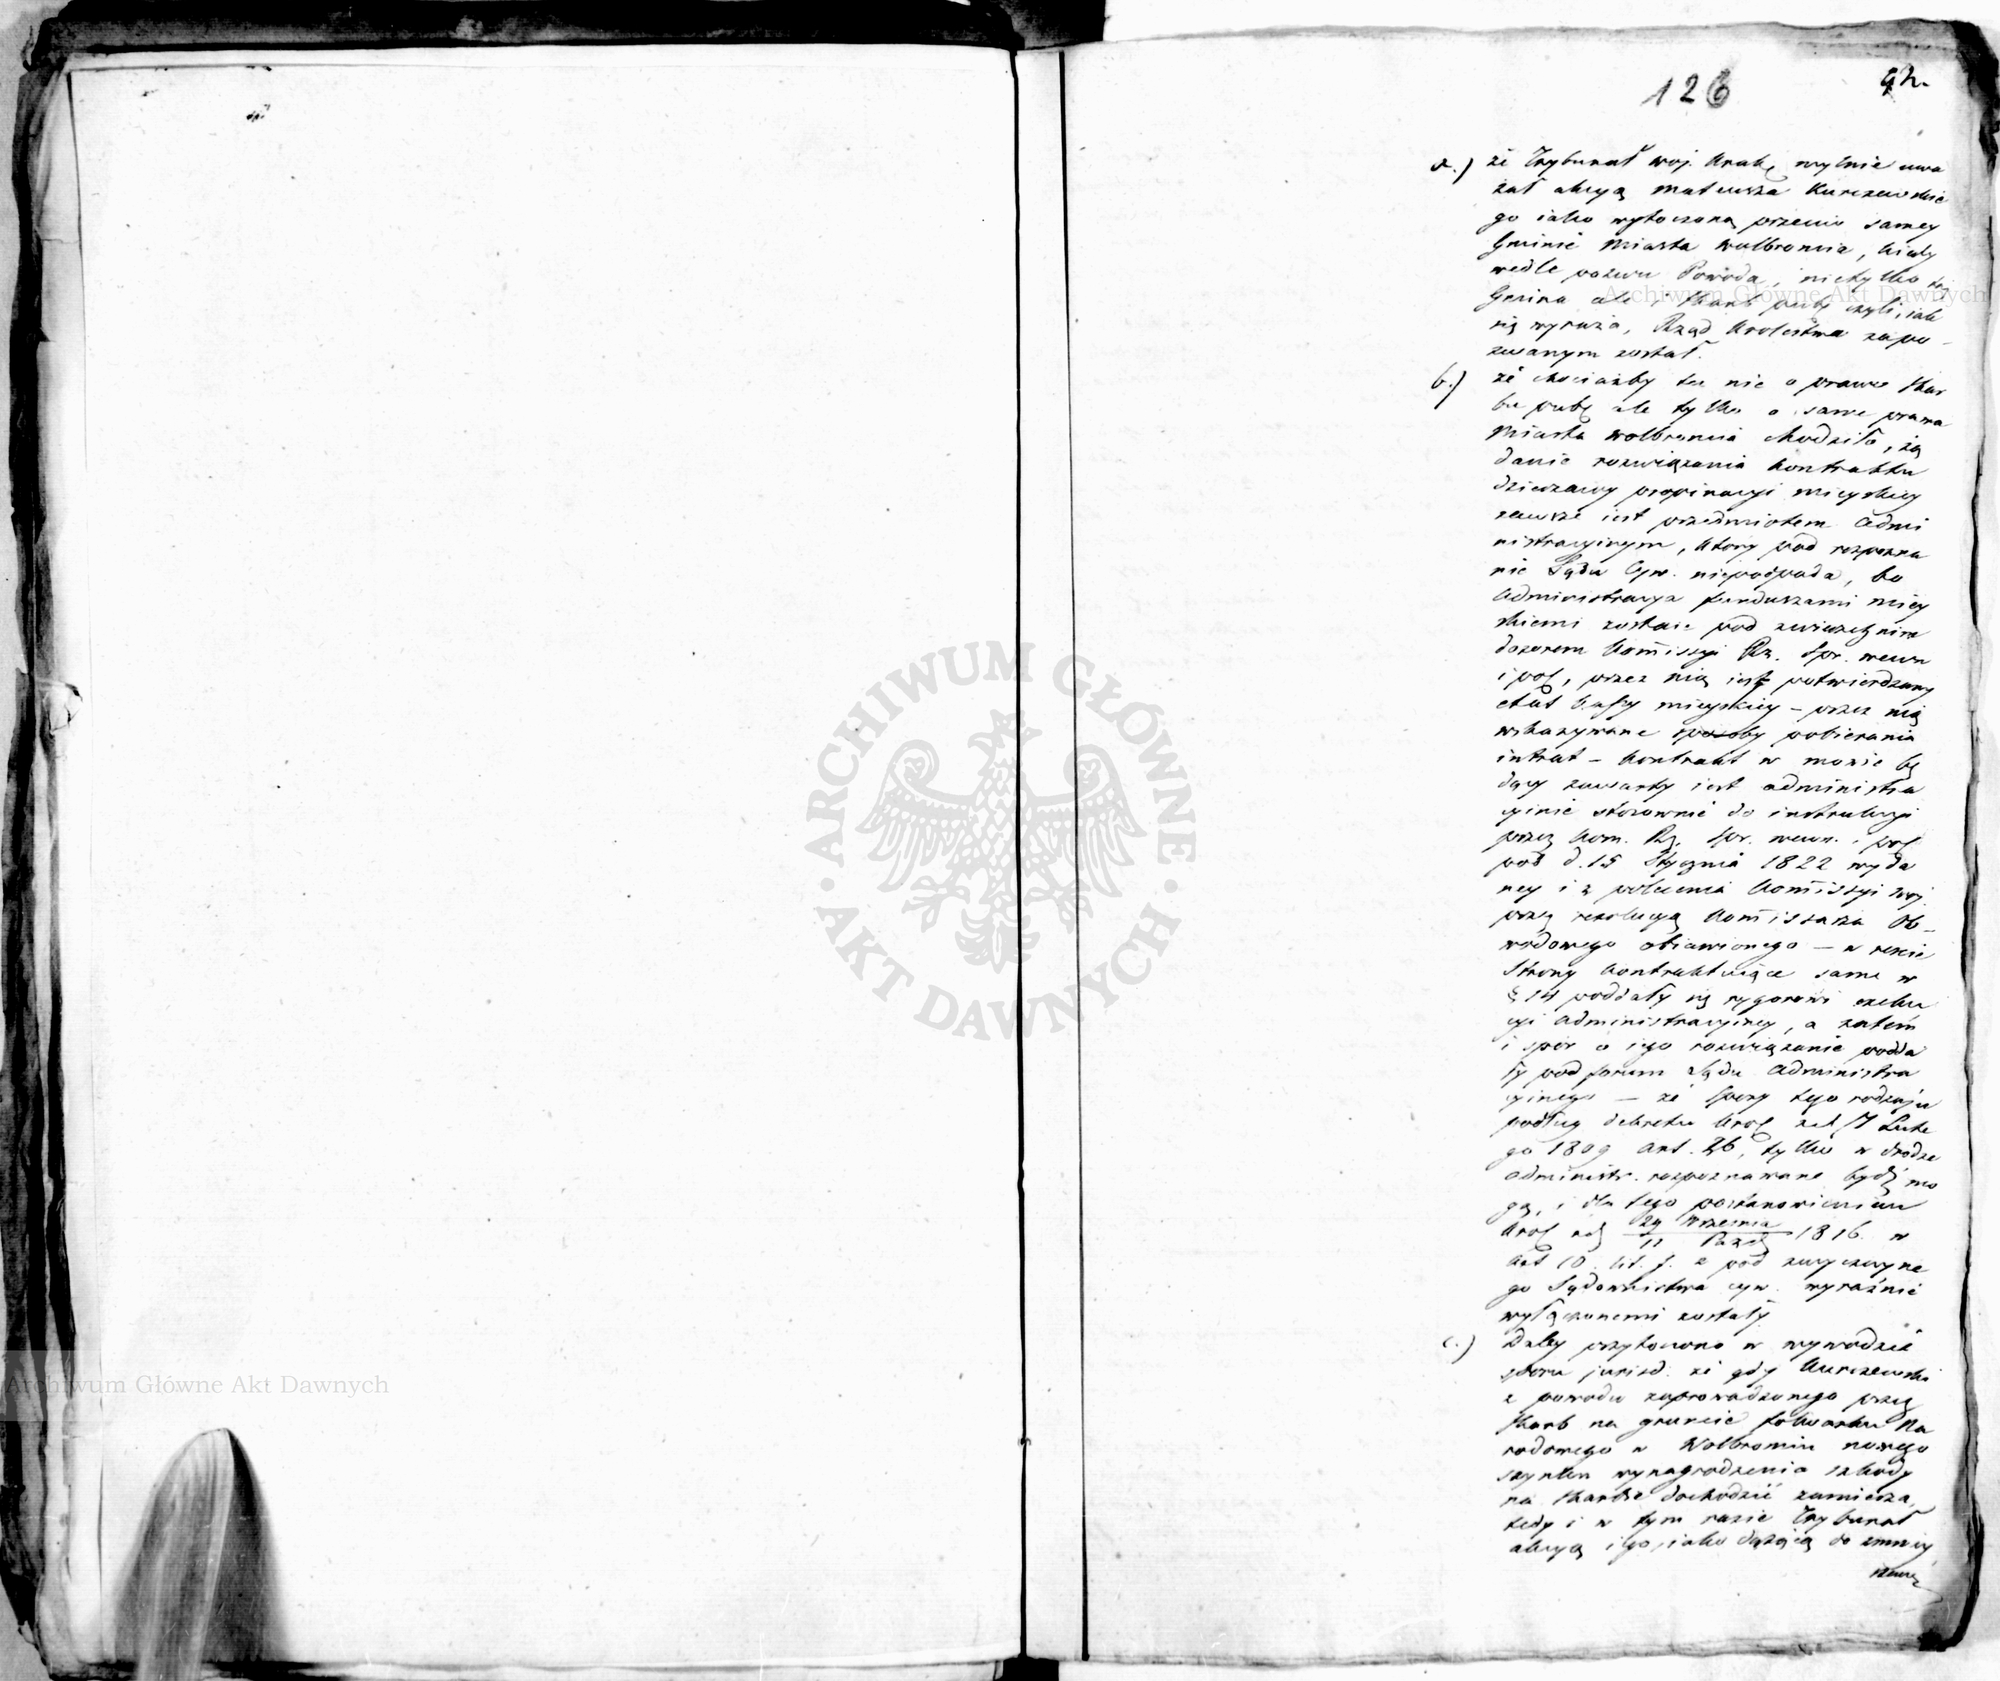 126
42.
a.) że Trybunał woj. Krakę mylnie uwa
żał akcyą Mateusza Kurczewskie
go iako wytoczoną przeciw samey
Gminie Miasta Wolbromia, kiedy
wedle pozwu Powoda, nietylko ta
Gmina ale i Skarb pubę czyli, iak
się wyraża, Rząd Krolestwa zapo-
zwanym został.
b.) że chociażby tu nie o prawo Skar
bu pubę ale tylko o same prawa
Miasta Wolbromia chodziło, żą
danie rozwiązania kontraktu
dzierżawy propinacyi mieyskiey
zawsze iest przedmiotem admi
nistracyinym, ktory pod rozpozna
nie Sądu Cyw. niepodpada, bo
administracya funduszami miey
skiemi zostaie pod zwierzchnim
dozorem Kommissyi Rz. Spr. wewn
i pol, przez nią iest potwierdzany
etat Kassy mieyskiey – przez nią
wskazywane sposoby pobierania
intrat – Kontrakt w mowie bę
dący zawarty iest administra
cyinie stosownie do instrukcyi
przez Kom. Rz. Spr. wewn. i pol
pod d. 15 Stycznia 1822 wyda
ney i z polecenia Kommissyi woj.
przez rezolucyą Kommissarza Ob-
wodowego obiawionego – w reście
Strony kontraktuiące same w
§ 14 poddały się rygorowi exeku
cyi administracyiney, a zatem
i spór o iego rozwiązanie podda
ły pod forum Sądu Administra
cyinego – że spory tego rodzaju
podług dekretu Krol. z d. 7 Lute
go 1809 art. 26, tylko w drodze
administr. rozpoznawane bydź mo
gą, i dla tego postanowieniem
Krol z d. 29 Września / 11 Paźdz 1816. w
Art 10. lit. f. z pod zwyczayne
go Sądownictwa cyw. wyraźnie
wyłączonemi zostały.
c.) Daley przytoczono w wywodzie
sporu jurisd. że gdy Kurczewski
z powodu zaprowadzonego przez
Skarb na gruncie folwarku Na
rodowego w Wolbromiu nowego
szynku wynagrodzenia szkody
na Skarbie dochodzić zamierza,
tedy i w tym razie Trybunał
akcyą iego, iako dążącą do zmniey